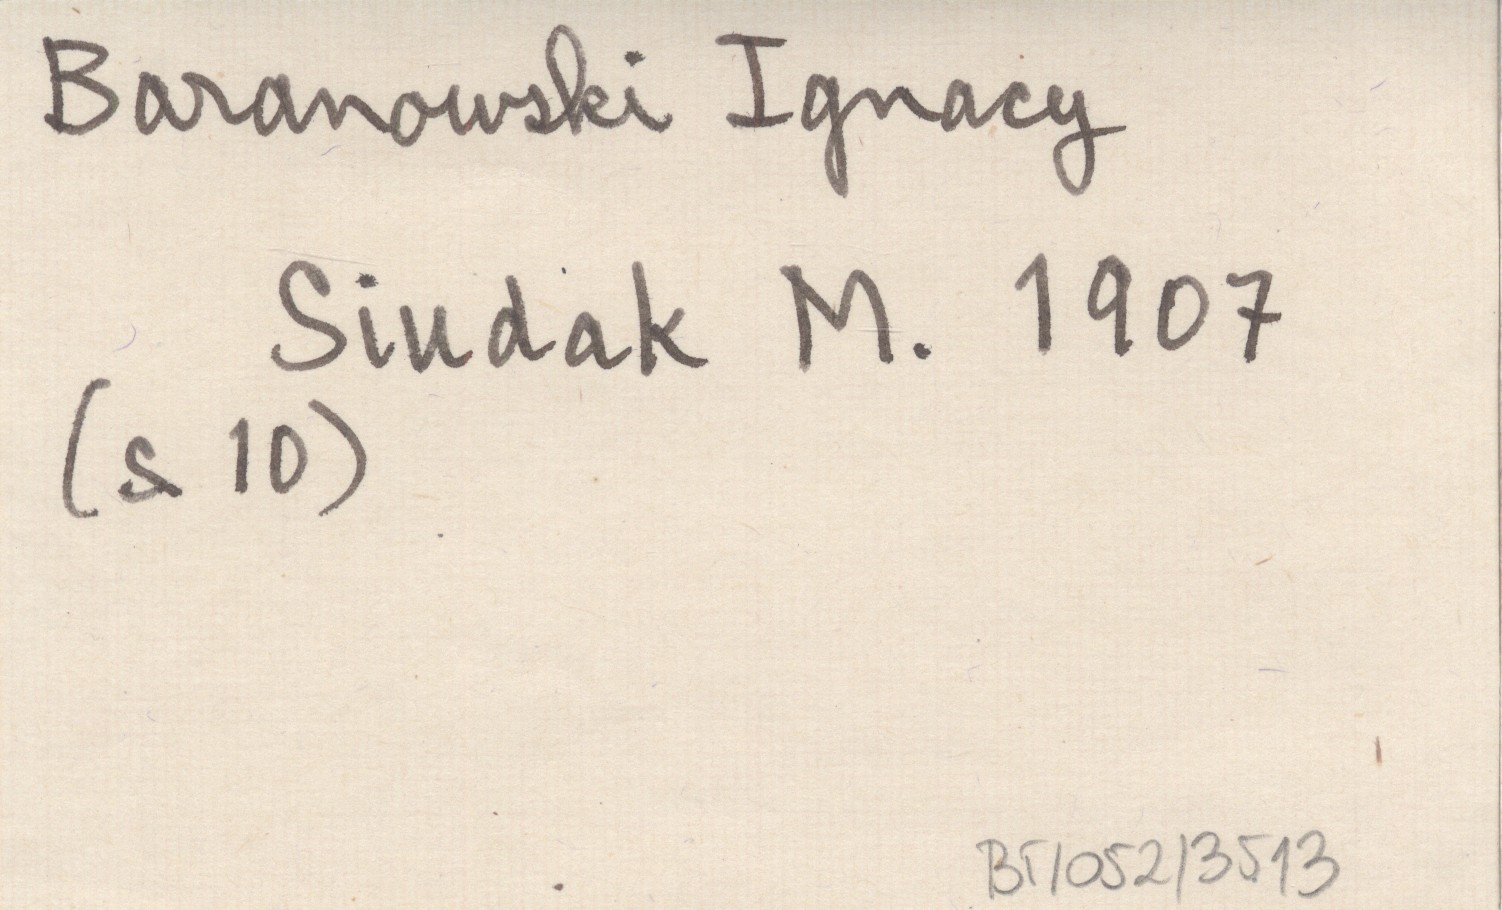 Baranowski Ignacy
Siudak M. 1907
(s 10)
BT/052/3513